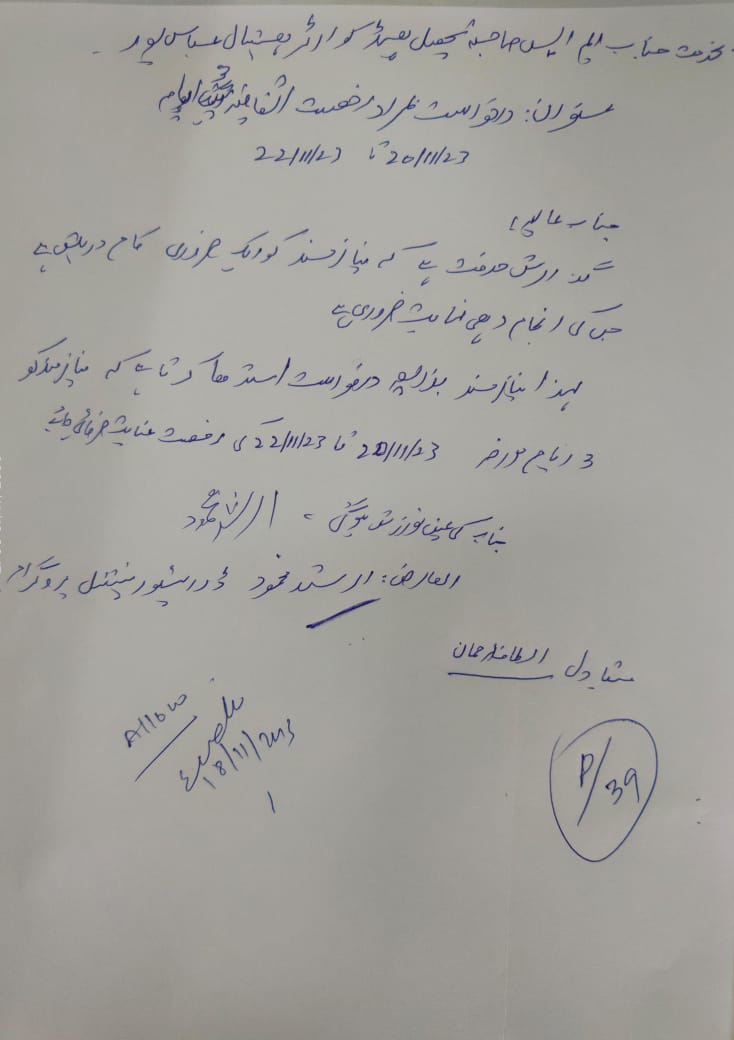 بخدمت جناب ایم ایس صاحبہ تحصیل ہیڈ کوارٹر ہسپتال عباس پور۔
عنوان: درخواست بمراد رخصت اتفاقیہ 3 ایام
20/11/23 تا 22/11/23
جناب عالیہ!
گذارش خدمت ہے کہ نیازمند کو ایک ضروری کام درپیش ہے
جس کی انجام دہی نہایت ضروری ہے
لہذا نیازمند بذریعہ درخواست استدعا کرتا ہے کہ نیازمند کو
3 ایام مورخہ 20/11/23 تا 22/11/23 کی رخصت عنایت فرمائی جائے
جناب کی عین نوازش ہوگی۔
العارض: ارشد محمود ڈرائیور نیشنل پروگرام
متبادل الطاف الرحمان
Allow
18/11/2023
P/39